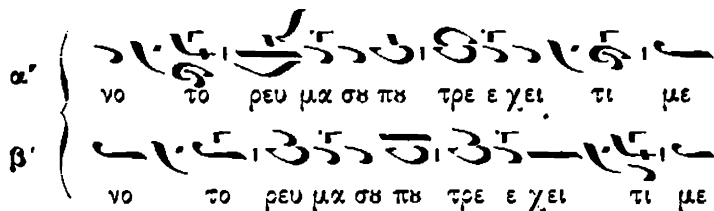 α'
νο το ρευ μα σȣ πȣ τρε ε χει τι με
β'
νο το ρευ μα σȣ πȣ τρε ε χει τι με